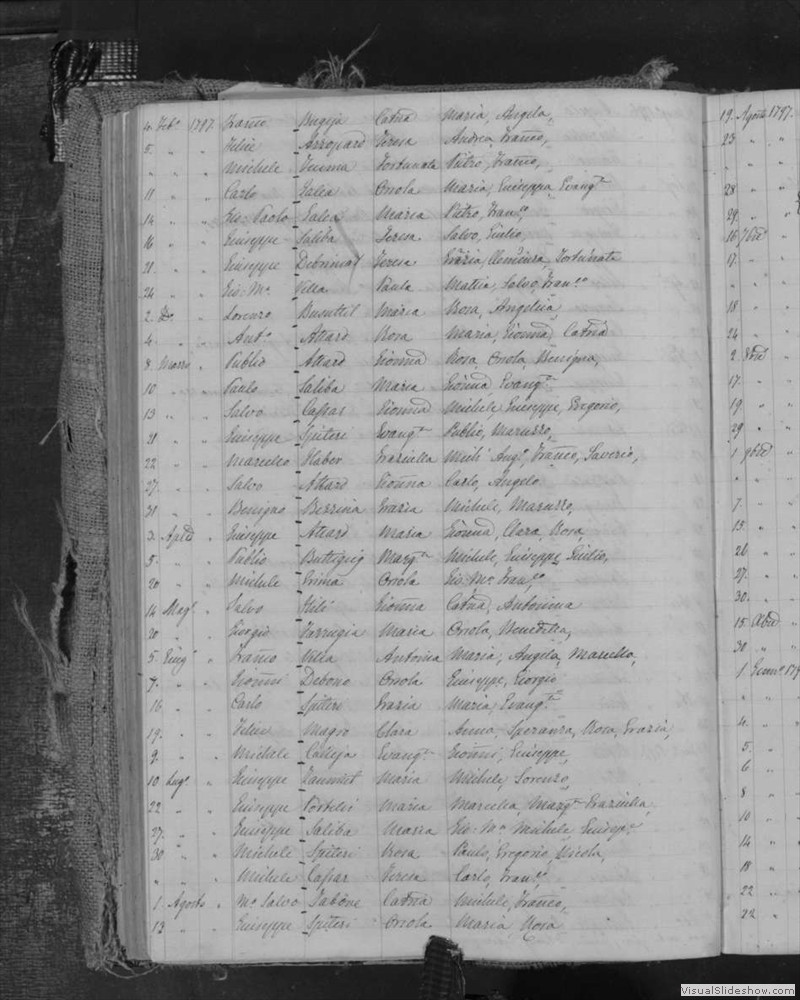 4. Feb.º 1797 Franco Bugeja Catna Maria, Angela,
5. " " Felice Azzopard Teresa Andrea, Franco,
" " " Michele Fortunata Pietro, Franco,
11 " " Carlo Galea Orsola Maria, Giuseppa, Evang.ta
14 " " Gio: Paolo Galea Maria Pietro, Fran.co
16 " " Giuseppe Saliba Teresa Salvo, Giulio,
21. " " Giuseppe Debrincat Teresa Grazia, Clemenza, Fortunata
24 " " Gio: Ma Vella Paula Mattia, Salvo, Fran.co
2. Do Lorenzo Busuttil Maria Rosa, Angelica,
4. " " Ant.o Attard Rosa Maria, Gionna, Catna
8. Marzo " Publio Attard Gionna Rosa, Orsola, Benigna,
10 " " Paulo Saliba Maria Gionna, Evang.ta
13 " " Salvo Caspar Gionna Michele, Giuseppe, Gregorio,
21 " " Giuseppe Spiteri Evang.ta Publio, Maruzzo,
22 " " Marcello Haber Graziella Mich: Ang.o, Franco, Saverio,
27. " " Salvo Attard Gionna Carlo, Angelo
31 " " Benigno Bezzina Grazia Michele, Maruzzo,
3. Aple " Giuseppe Attard Maria Gionna, Clara, Rosa,
5. " " Publio Buttigieg Marg.ta Michele, Giuseppe, Giulio,
20 " " Michele Grima Orsola Gio: Ma Fran.co
14 Mag.o " Salvo Hili Gionna Catna, Antonina
20 " " Giorgio Farrugia Maria Orsola, Benedetta,
5. Giug.o " Franco Vella Antonia Maria, Angela, Marcella,
7. " " Gionni Debono Orsola Giuseppe, Giorgio
16 " " Carlo Spiteri Grazia Maria, Evang.ta
19. " " Felice Magro Clara Anna, Speranza, Rosa, Grazia,
9. " " Michele Calleja Evang.ta Gionni, Giuseppe,
10 Lug.o " Giuseppe Zammit Maria Michele, Lorenzo,
22 " " Giuseppe Portelli Maria Marcella, Marg.ta Graziella,
27. " " Giuseppe Saliba Maria Gio: Ma Michele, Giusep.e
30 " " Michele Spiteri Rosa Paulo, Gregorio, Nicola,
" " " Michele Caspar Teresa Carlo, Fran.co
1. Agosto " Mo Salvo Catna Michele, Franco,
13 " " Giuseppe Spiteri Orsola Maria, Rosa
19. Agosto 1797.
23 " "
" " "
28 " "
29. " "
16 7bre
17. " "
" " "
18 " "
24 " "
2. 8bre
17. " "
19. " "
29 " "
1 9bre
" " "
7. " "
15. " "
26 " "
27. " "
30. " "
15 Xbre
30 " "
1. Genn.o 179
" " "
4. " "
5. " "
6 " "
8 " "
10 " "
14 " "
18 " "
22 " "
22 " "
VisualSlideshow.com